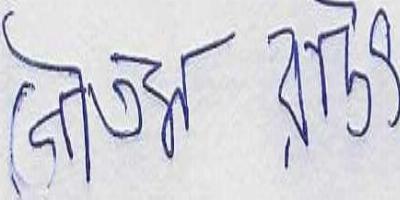 গৌতম রাউৎ